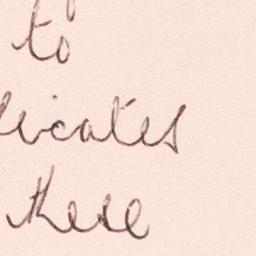 to
licates
these